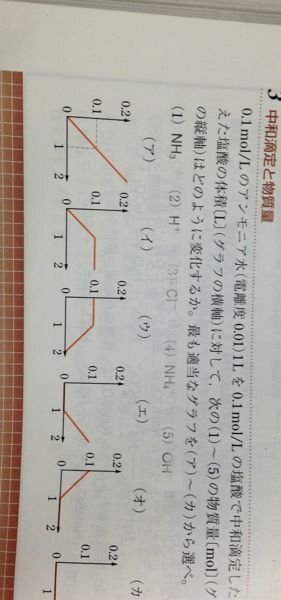 3 中和滴定と物質量
0.1 mol/Lのアンモニア水(電離度 0.01)1Lを0.1 mol/Lの塩酸で中和滴定した
えた塩酸の体積[L](グラフの横軸)に対して,次の(1)~(5)の物質量[mol](グ
の縦軸)はどのように変化するか。最も適当なグラフを(ア)~(カ)から選べ。
(1) NH₃ (2) H⁺ (3) Cl⁻ (4) NH₄⁺ (5) OH⁻
(ア) (イ) (ウ) (エ) (オ) (カ
0.2 0.2 0.2 0.2 0.2 0.2
0.1 0.1 0.1 0.1 0.1 0.1
0 1 2 0 1 2 0 1 2 0 1 2 0 1 2 0